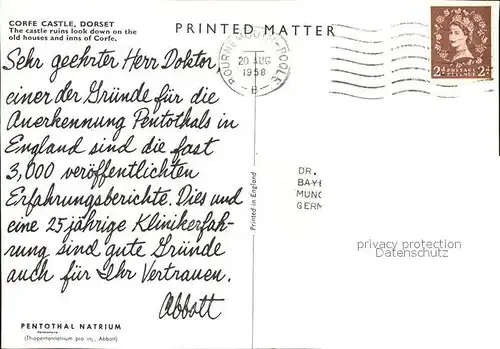 CORFE CASTLE, DORSET
The castle ruins look down on the
old houses and inns of Corfe.
PRINTED MATTER
BOURNEMOUTH-POOLE
20 AUG
1958
- B -
2½D POSTAGE REVENUE 2½D
Sehr geehrter Herr Doktor
einer der Gründe für die
Anerkennung Pentothals in
England sind die fast
3,000 veröffentlichten
Erfahrungsberichte. Dies und
eine 25 jährige Klinikerfah-
rung sind gute Gründe
auch für Ihr Vertrauen.
Abbott
PENTOTHAL NATRIUM
(Thiopentonnatrium pro inj., Abbott)
Printed in England
DR.
BAYE
MUNC
GERM
privacy protection
Datenschutz